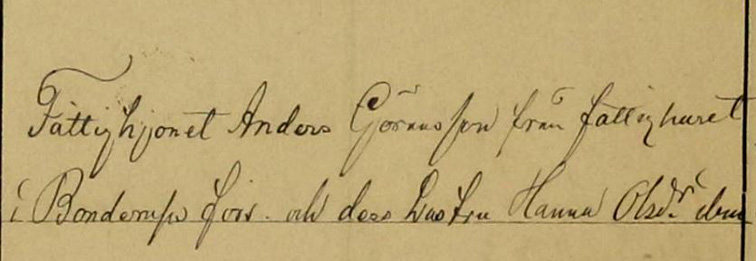 Fattighjonet Anders Göransson från fattighuset
i Bonderup förr. och dess hustru Hanna Olsdr. ibm